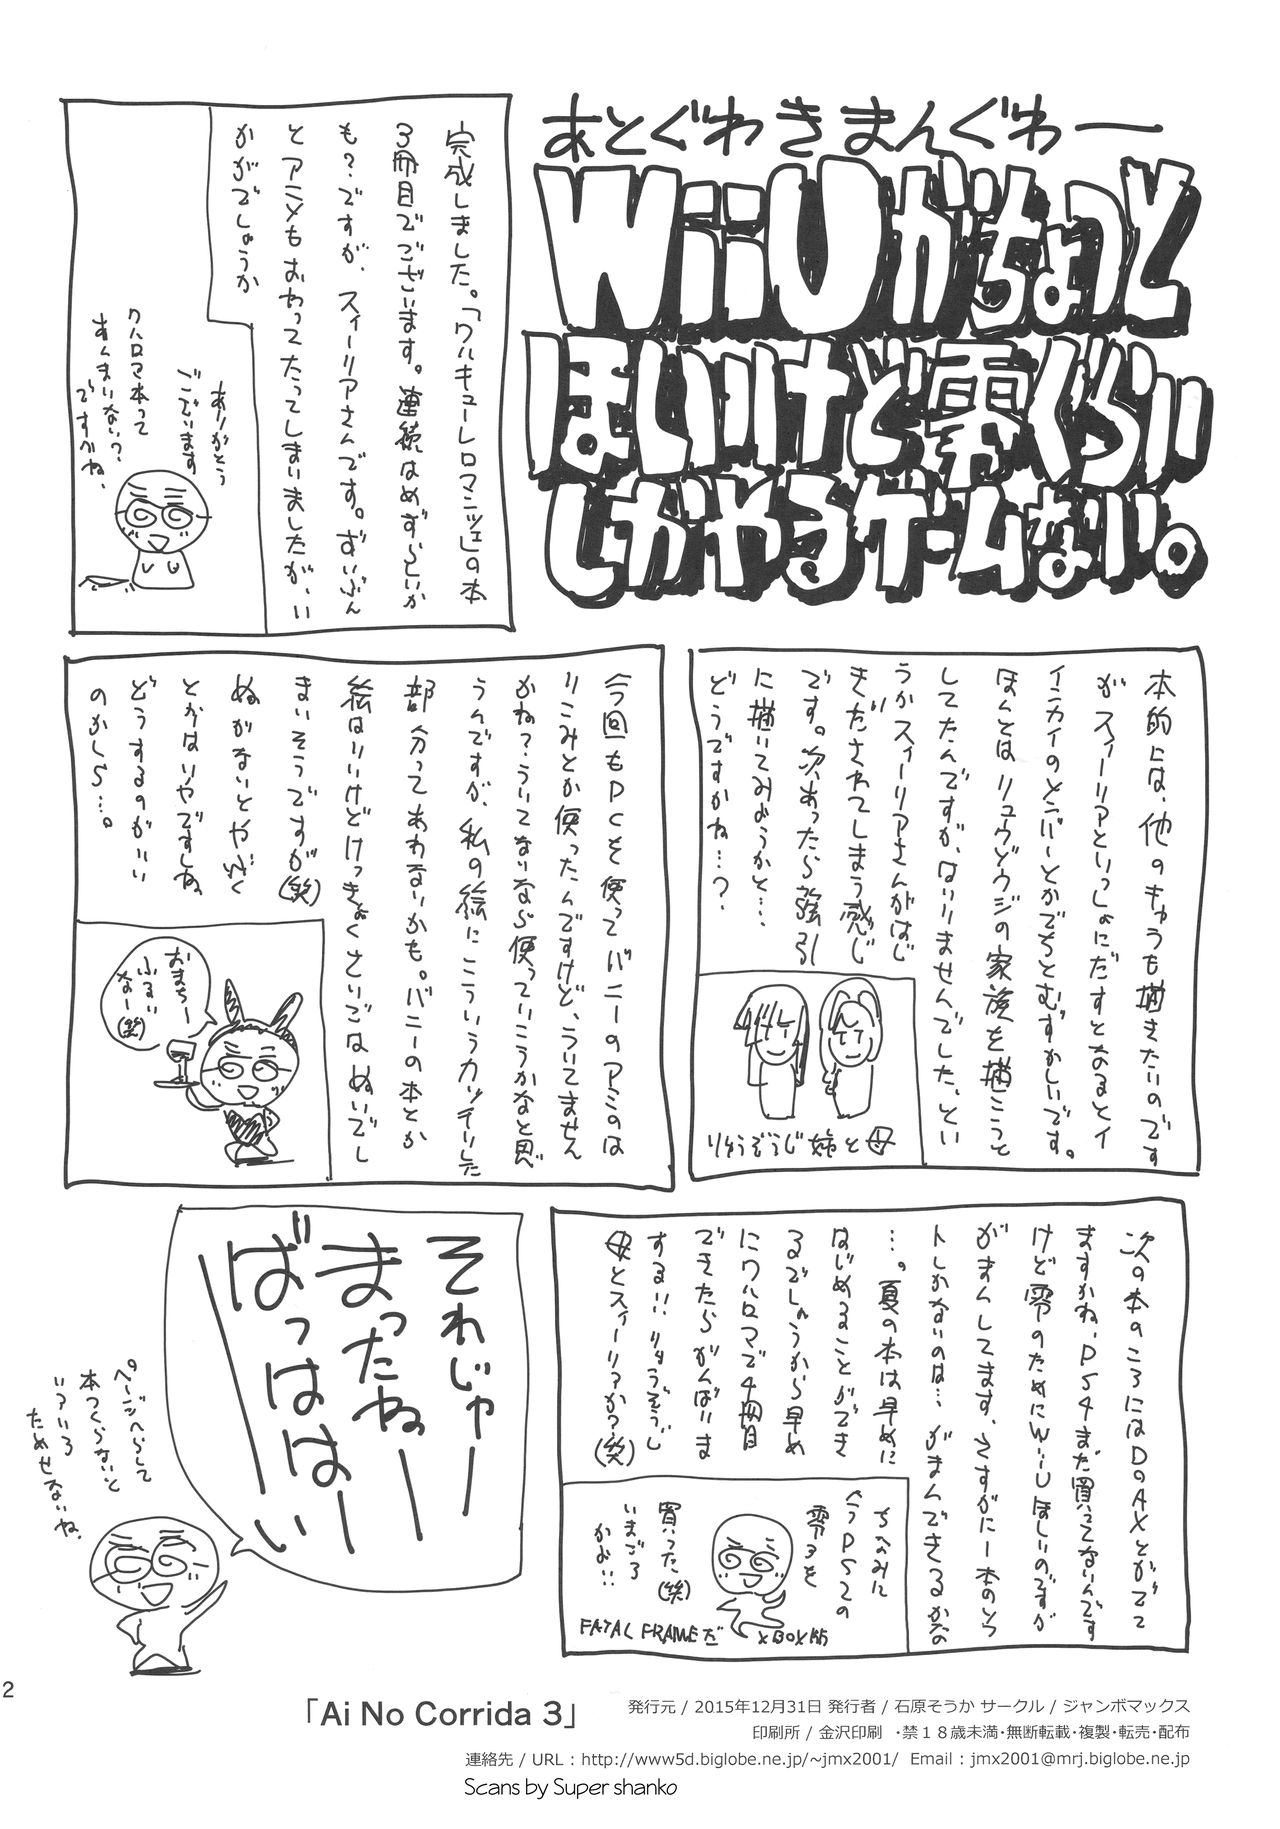 あとぐわきまんぐわー
WiiUがちょっと
ほしいけど零ぐらい
しかやるゲームない。
完成しました。「ワルキューレロマンツェ」の本
3冊目でございます。連続はめずらしいか
も?ですが、スィーリアさんです。ずいぶん
とアニメもおわってたってしまいましたが、い
かがでしょうか
ありがとう
ございます
ワルロマ本って
あんまりない?
ですかね、
本的には、他のきゃらも描きたいのです
がスィーリアといっしょにだすとなるとイ
イカイのメンバーとかでちとむずかしいです。
ほんとはリュウゾウジの家族を描こうと
してたんですが、はいりませんでした、とい
うかスィーリアさんがはじ
きだされてしまう感じ
です。次あったら強引
に描いてみようかと…
どうですかね…?
りゅうぞうじ 姉と母
今回もPCを使ってバニーのアミのは
りこみとか使ったんですけど、ういてません
かね?ういてないなら使っていこうかなと思
うんですが、私の絵にこういうカッチリした
部分ってあわないかも。バニーの本とか
絵はいいけどけっきょくさいごはぬいでし
まいそうですが(笑)
ぬがないとやばく
とかはいやですしね
どうするのがいい
のかしら…。
おまちー
ふるい
なー(笑)
次の本のころにはDOAXとかでて
ますかね、PS4まだ買ってないんです
けど零のためにWiiUほしいのですが
がまんしてます、さすがに一本のソフ
トしかないのは…がまんできるかな
…。夏の本は早めに
はじめることができ
るでしょうから早め
にワルロマで4冊目
できたらがんばりま
する!!りゅうぞうじ
母とスィーリアか?(笑)
ちなみに
今PS2の
零3を
買った(笑)
いまごろ
かよ!!
FATAL FRAMEだ
XBOX版
それじゃー
まったねー
ばっははーい
ページへらして
本つくらないと
いろいろ
ためせないね、
2
「Ai No Corrida 3」
発行元 / 2015年12月31日 発行者 / 石原そうか サークル / ジャンボマックス
印刷所 / 金沢印刷 ・禁18歳未満・無断転載・複製・転売・配布
連絡先 / URL : http://www5d.biglobe.ne.jp/~jmx2001/ Email : jmx2001@mrj.biglobe.ne.jp
Scans by Super shanko